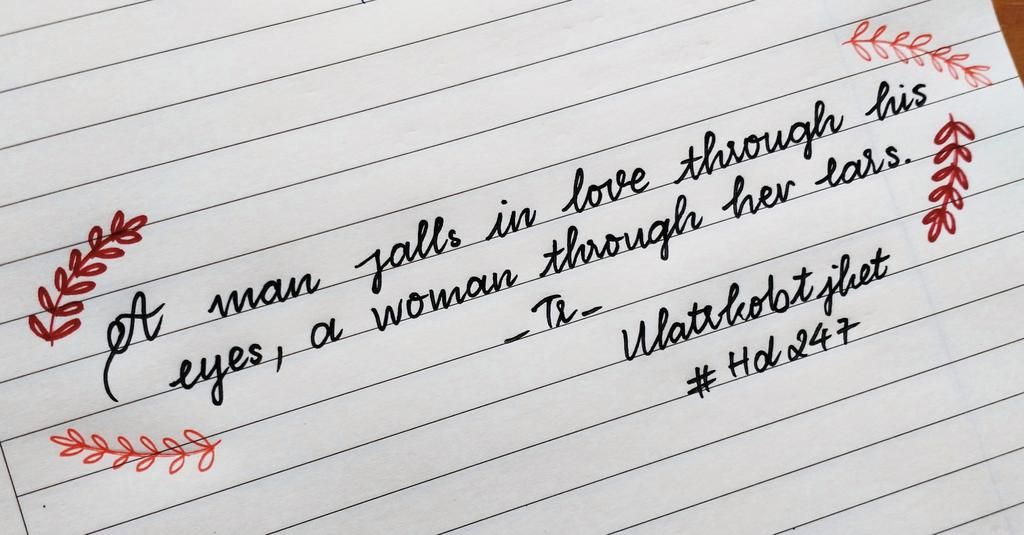 A man falls in love through his
eyes, a woman through her ears.
- Tr -
# Hd 247